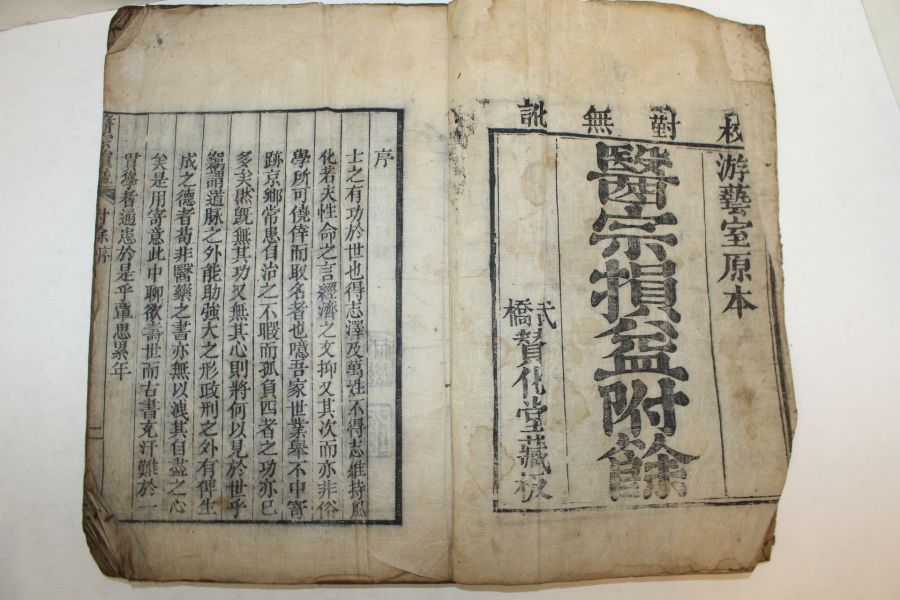 校對無訛
游藝室原本
醫宗損益附餘
武橋賛化堂藏板
序
士之有功於世也得志澤及萬姓不得志維持風
化若夫性命之言經濟之文抑又其次而亦非俗
學所可僥倖而取名者也噫吾家世業舉不中寄
跡京鄉常患自治之不暇而孤負四者之功亦已
多矣然旣無其功又無其心則將何以見於世乎
竊謂道脉之外能助強大之形政刑之外有俾生
成之德者苟非醫藥之書亦無以洩其自盡之心
矣是用寄意此中聊欲壽世而古書充汗難於一
覽學者通患於是乎覃思累年
附餘序
一